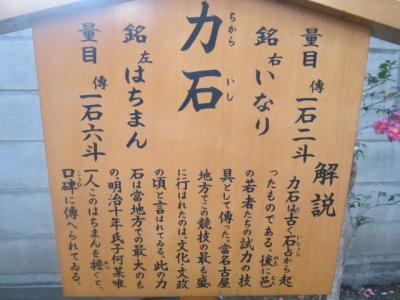 力石
ちから いし
銘 右 いなり
量目 傳 一石二斗
銘 左 はちまん
量目 傳 一石六斗
解説
力石は古く石占から起
いしうら
ったものである。後に邑
むら
の若者たちの試力の技
具として傳った。當名古屋
地方でこの競技の最も盛
に行はれたのは、文化、文政
の頃と言はれてゐる。此の力
石は當地方での最大のも
の。明治十年氏子何某唯
一人このはちまんを擔ぐと、
口碑に傳へられてゐる。
こうひ